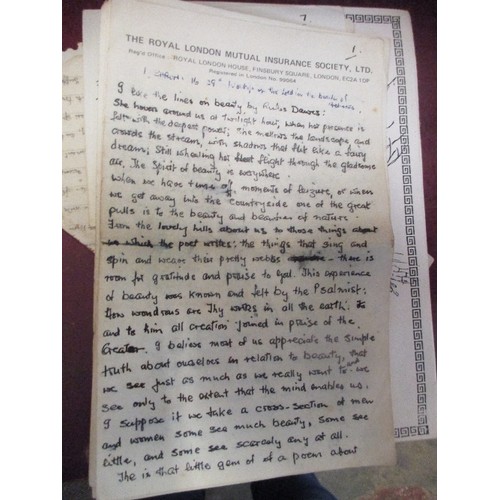 7.
1.
THE ROYAL LONDON MUTUAL INSURANCE SOCIETY, LTD.
Reg'd Office: ROYAL LONDON HOUSE, FINSBURY SQUARE, LONDON, EC2A 1DP
Registered in London No. 99064
I take the lines on beauty by
She hovers around us at twilight hour, when her presence is
felt with the deepest power; She mellows the landscape and
crowds the stream, with shadows that flit like a fairy
dreams; Still wheeling her flight through the gladsome
air, The Spirit of beauty is everywhere.
When we have times of moments of leisure, or when
we get away into the countryside one of the great
pulls is to the beauty and beauties of nature.
From the lovely hills about us to those things about
us which the poet writes: the things that sing and
spin and weave their pretty webbs - there is
room for gratitude and praise to God. This experience
of beauty was known and felt by the Psalmist:
How wondrous are Thy works in all the earth:
and to him all creation joined in praise of the
Creator. I believe most of us appreciate the simple
truth about ourselves in relation to beauty, that
we see just as much as we really want to and we
see only to the extent that the mind enables us.
I suppose if we take a cross-section of men
and women some see much beauty, some see
little, and some see scarcely any at all.
The is that little gem of of a poem about